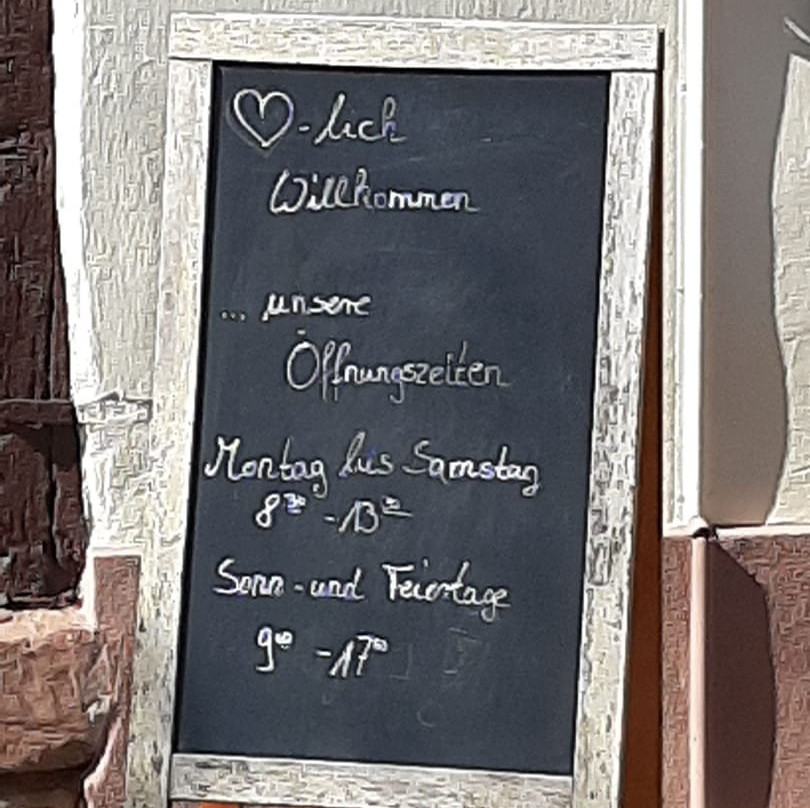 ♡-lich
Willkommen
... unsere
Öffnungszeiten
Montag bis Samstag
8³⁰ - 13³⁰
Sonn - und Feiertage
9⁰⁰ - 17⁰⁰